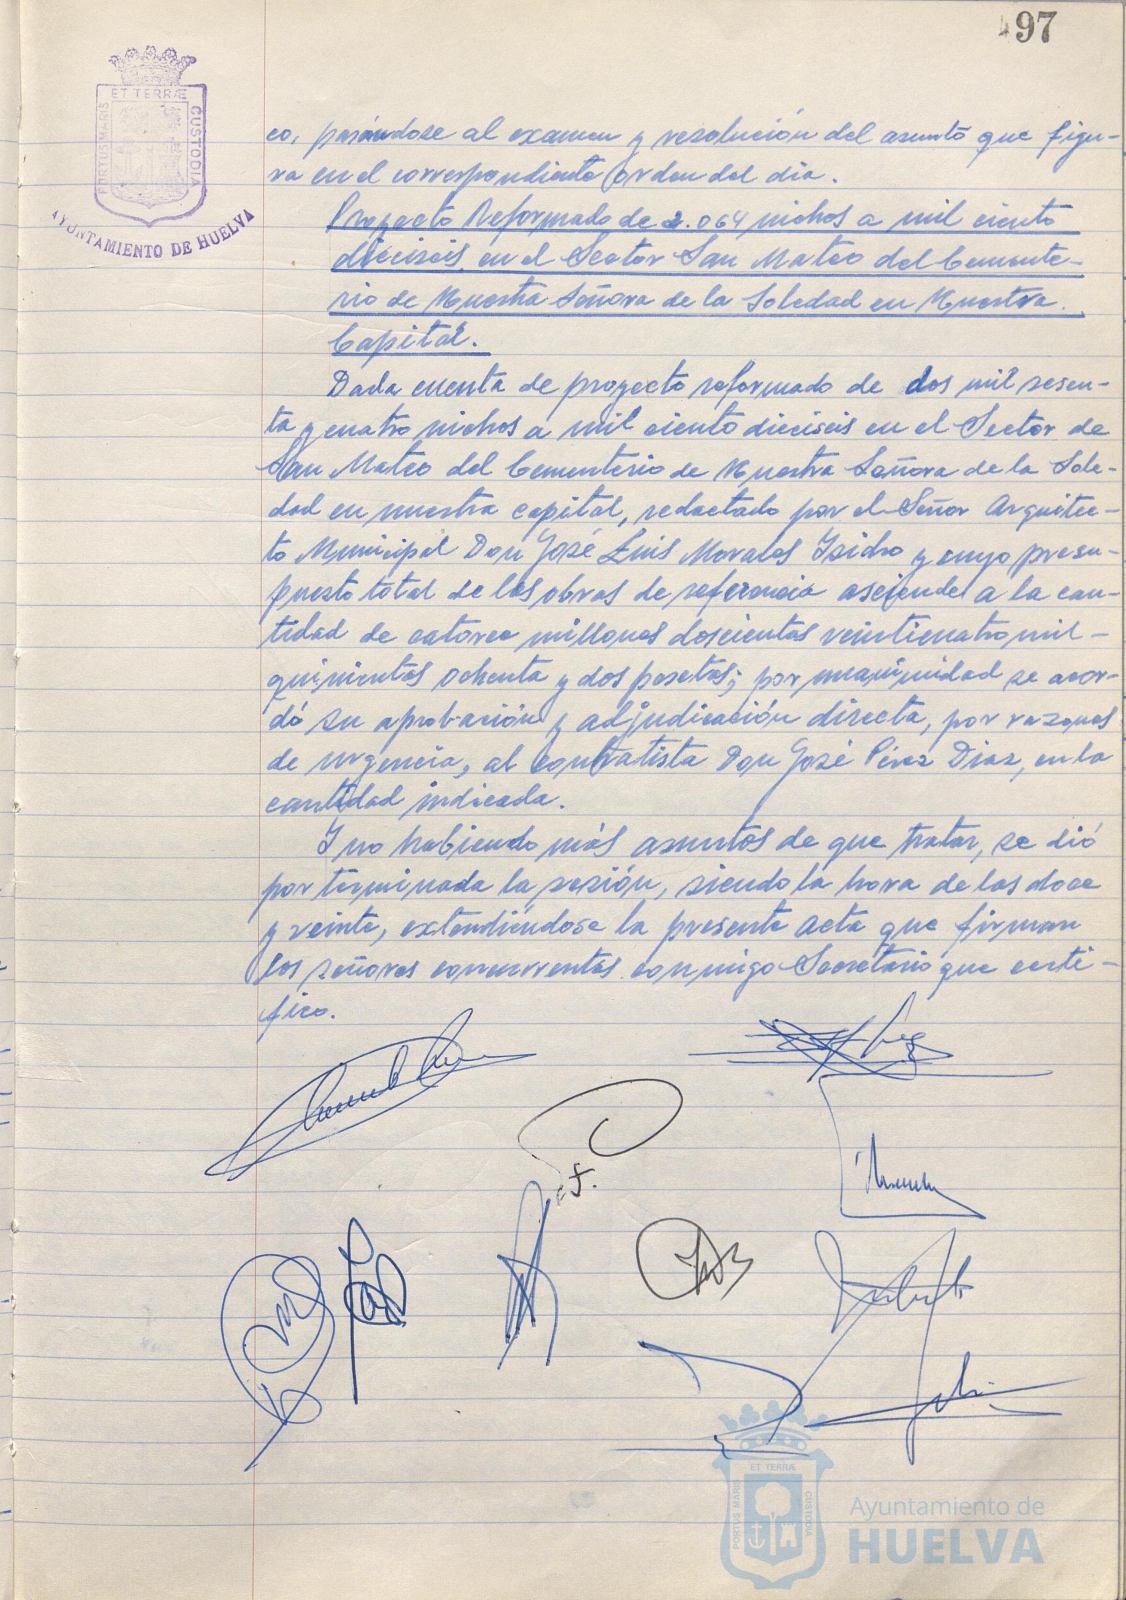 97
ET TERRÆ
PORTUS MARIS
CUSTODIA
AYUNTAMIENTO DE HUELVA
co, pasándose al examen y resolución del asunto que figu-
ra en el correspondiente Orden del día.
Proyecto Reformado de 2.064 nichos a mil ciento
dieciseis en el Sector San Mateo del Cemente-
rio de Nuestra Señora de la Soledad en Nuestra
Capital.
Dada cuenta de proyecto reformado de dos mil sesen-
ta y cuatro nichos a mil ciento dieciseis en el Sector de
San Mateo del Cementerio de Nuestra Señora de la Sole-
dad en nuestra capital, redactado por el Señor Arquitec-
to Municipal Don José Luis Morales Isidro y cuyo presu-
puesto total de las obras de referencia asciende a la can-
tidad de catorce millones doscientas veinticuatro mil
quinientas ochenta y dos pesetas; por unanimidad se acor-
dó su aprobación y adjudicación directa, por razones
de urgencia, al contratista Don José Pérez Diaz, en la
cantidad indicada.
Y no habiendo más asuntos de que tratar, se dió
por terminada la sesión, siendo la hora de las doce
y veinte, extendiéndose la presente acta que firman
los señores concurrentes conmigo Secretario que certi-
fico.
ET TERRÆ
PORTUS MARIS
CUSTODIA
Ayuntamiento de
HUELVA